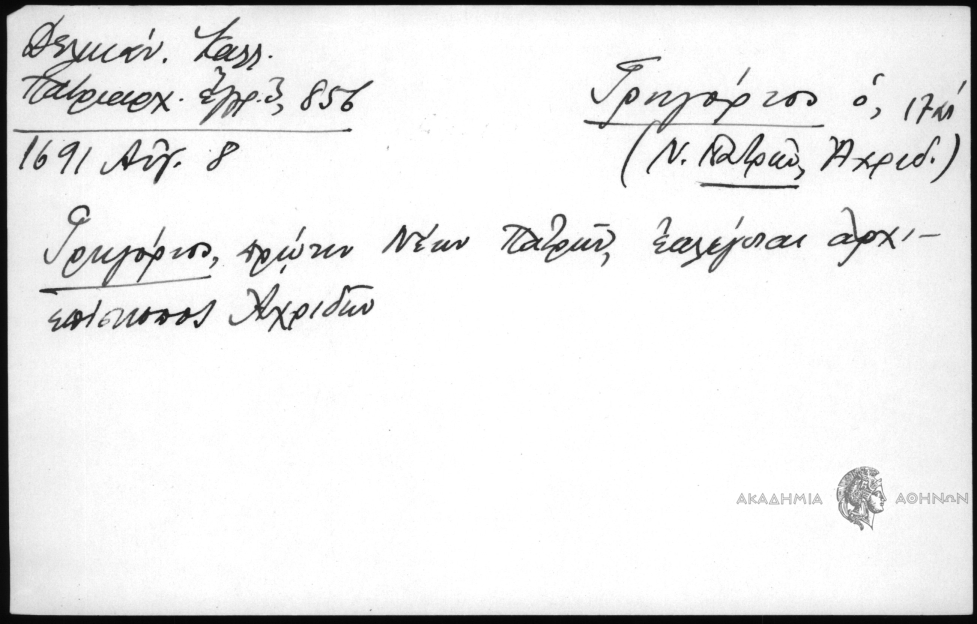 Δελικάν. Καλλ.
Πατριαρχ. Ἔγγρ. 3, 856
1691 Αὐγ. 8
Γρηγόριος ὁ, 17 αἰ
(Ν. Πατρῶν, Ἀχριδ.)
Γρηγόριος, πρώην Νέων Πατρῶν, ἐκλέγεται ἀρχι-
επίσκοπος Ἀχριδῶν
ΑΚΑΔΗΜΙΑ ΑΘΗΝΩΝ